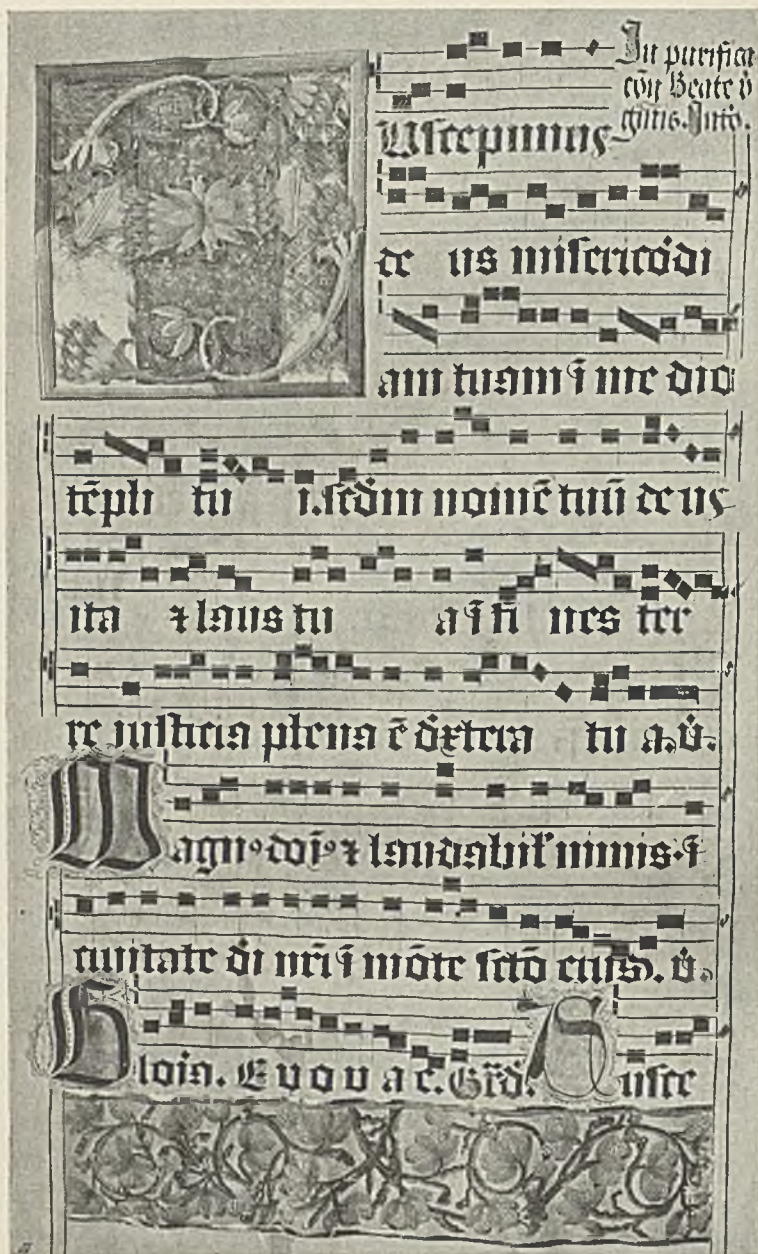 In purificat
cōn Beate v̄
ginis. Intō.
Uscepimus
de us misericōdi
am tuam ī me dio
tēpli tu i. sēdm nomē tuū de us
ita ⁊ laus tu a ī fi nes ter
re iusticia plena ē dextera tu a. v̄.
Magnꝰ doīꝰ ⁊ laudabilꝭ nimis. ī
ciuitate di nrī ī mōte sctō eius. v̄.
Gloia. E v o v a e. Gr̄d. Susce